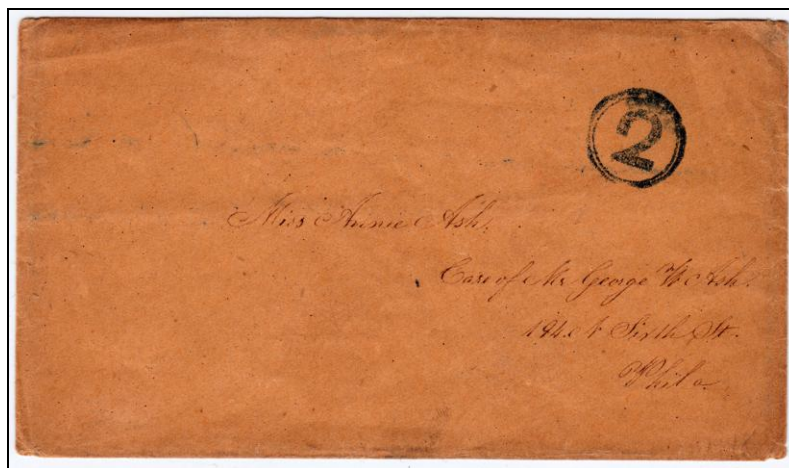 2
Miss Annie Ash.
Care of Mr George W Ash.
194 N Sixth St.
Phila